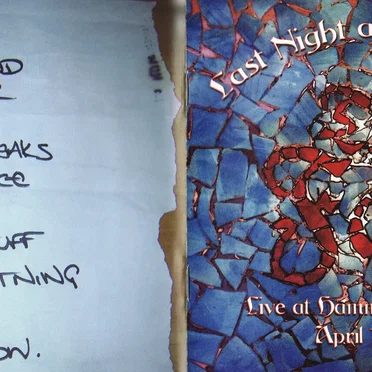 D
EAKS
EE
UFF
TNING
ON.
Last Night a
Live at Hamm
April